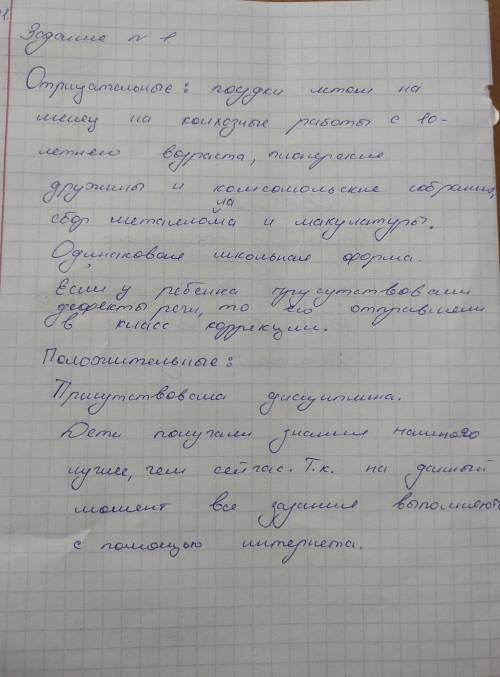 Задание № 1.
Отрицательные: поездки летом на
месяц на колхозные работы с 10-
летнего возраста, пионерские
дружины и комсомольские собрания,
сбор металлолома и макулатуры.
Одинаковая школьная форма.
Если у ребенка присутствовали
дефекты речи, то его отправляли
в класс коррекции.
Положительные:
Присутствовала дисциплина.
Дети получали знания намного
лучше, чем сейчас. Т.к. на данный
момент все задания выполняются
с помощью интернета.